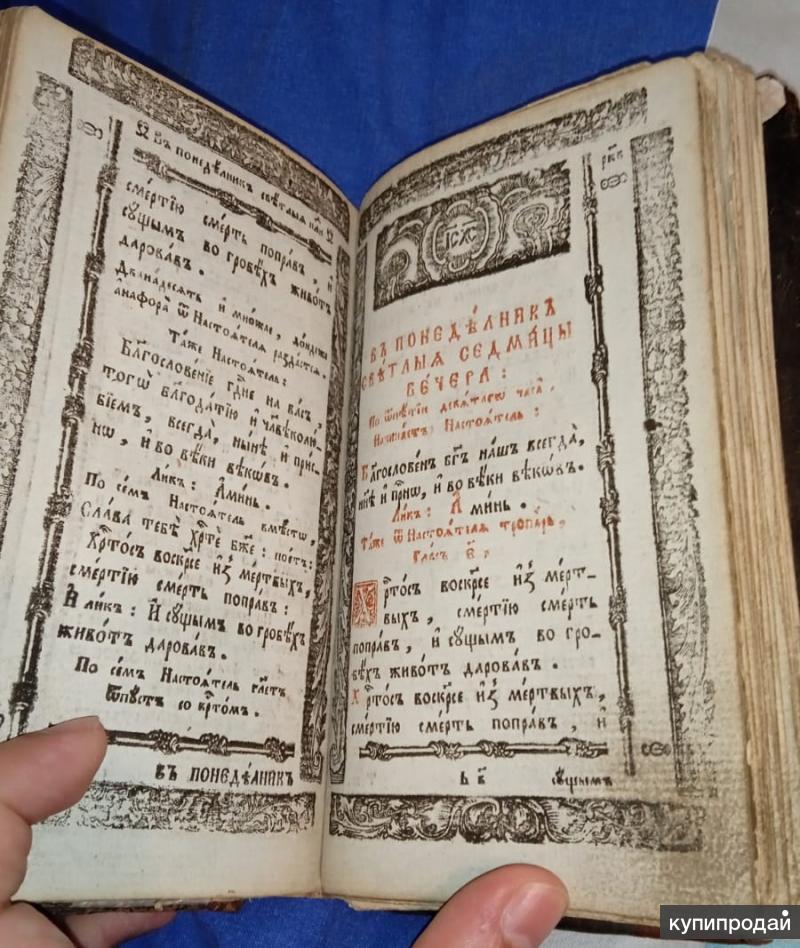 Въ понедѣлникъ свѣтлыя
сме́ртїю сме́рть попра́въ, и҆
су́щымъ во гробѣ́хъ живо́тъ
дарова́въ.
Дванадесять и҆ множае, дондеже
а҆нафора ѿ Настоѧтелѧ раздастсѧ.
Та́же Настоѧтель:
Благослове́нїе гдⷭ҇не на ва́съ,
тогѡ̀ благода́тїю и҆ члвѣ́колю́-
бїемъ, всегда̀, ны́нѣ и҆ при́с-
нѡ, и҆ во вѣ́ки вѣкѡ́въ.
Ли́къ: А҆ми́нь.
По се́мъ Настоѧтель вмѣстѡ,
Сла́ва тебѣ̀ хрⷭ҇тѐ бж҃е: пое́тъ:
Хрⷭ҇то́съ воскр҃се и҆з̾ ме́ртвыхъ,
сме́ртїю сме́рть попра́въ:
И҆ ли́къ: И҆ су́щымъ во гробѣ́хъ
живо́тъ дарова́въ.
По се́мъ Настоѧтель гл҃етъ
ѿпустъ со крⷭ҇то́мъ.
въ понедѣ́лникъ
рк҃в
І҃С Х҃С
въ понедѣ́лникъ
свѣ́тлыѧ седми́цы
ве́чера:
По ѿпѣтїи девѧтагѡ часа̀,
Начинаетъ Настоѧтель:
Благослове́нъ бг҃ъ на́шъ всегда̀,
ны́нѣ и҆ при́снѡ, и҆ во вѣ́ки вѣкѡ́въ.
Ли́къ: А҆ми́нь.
Та́же ѿ Настоѧтелѧ тропа́рь,
Гла́съ в҃.
Хрⷭ҇то́съ воскр҃се и҆з̾ ме́рт-
выхъ, сме́ртїю сме́рть
попра́въ, и҆ су́щымъ во гро-
бѣ́хъ живо́тъ дарова́въ.
Хрⷭ҇то́съ воскр҃се и҆з̾ ме́ртвыхъ,
сме́ртїю сме́рть попра́въ, и҆
ь в҃ су́щымъ
купипродай